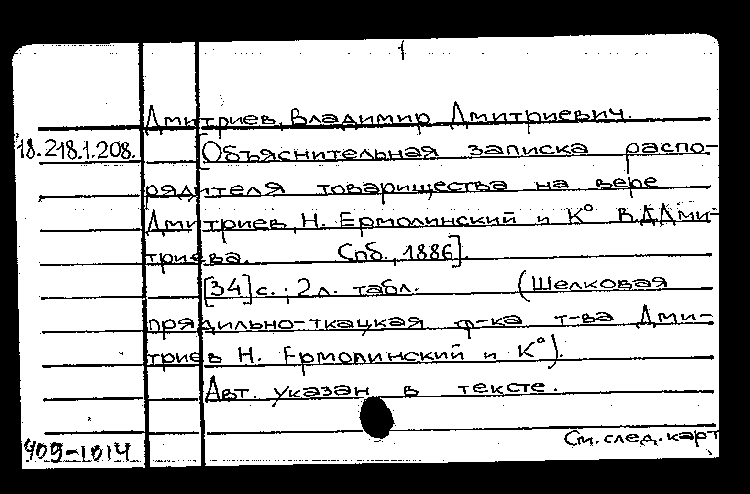 1
Дмитриев, Владимир Дмитриевич.
18.218.1.208. [Объяснительная записка распо-
рядителя товарищества на вере
Дмитриев, Н. Ермолинский и К° В.Д.Дми-
триева. Спб., 1886].
[34] с.; 2 л. табл. (Шелковая
прядильно-ткацкая ф-ка т-ва Дми-
триев Н. Ермолинский и К°).
Авт. указан в тексте.
См. след. карт
409-1014